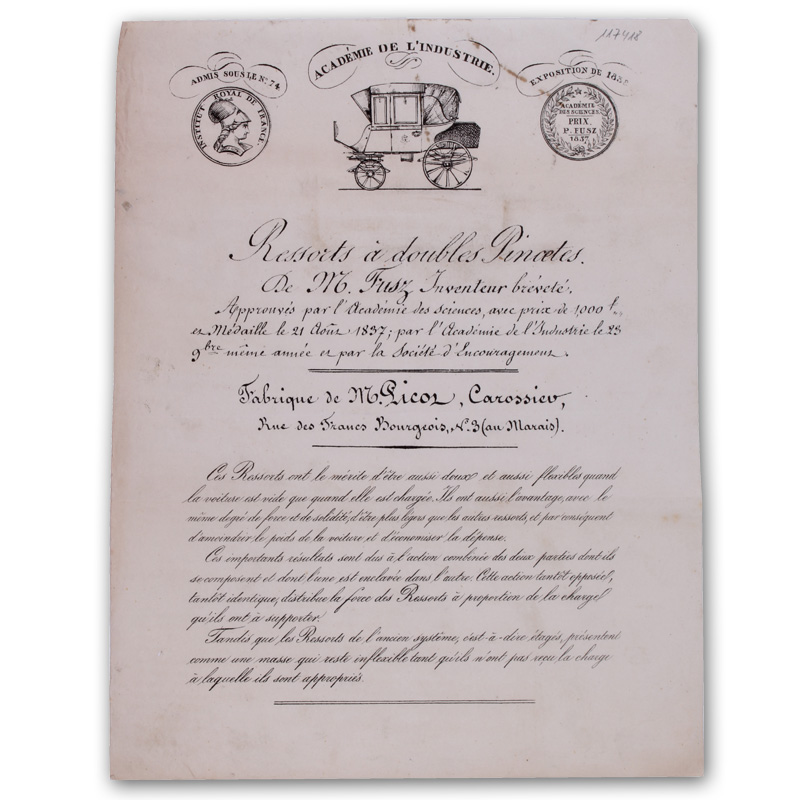 117418
ACADÉMIE DE L'INDUSTRIE.
ADMIS SOUS LE N° 74
EXPOSITION DE
INSTITUT ROYAL DE FRANCE.
ACADÉMIE
DES SCIENCES
PRIX
P. FUSZ
1837
Ressorts à doubles Pincetes.
De M. Fusz Inventeur bréveté.
Approuvés par l'Académie des sciences, avec prix de 1,000 f.
et Médaille le 21 Août 1837; par l'Académie de l'Industrie le 23
9bre même année et par la Société d'Encouragement.
Fabrique de M. Picot, Carossier,
Rue des Francs Bourgeois, N.3 (au Marais).
Ces Ressorts ont le mérite d'être aussi doux et aussi flexibles quand
la voiture est vide que quand elle est chargée. Ils ont aussi l'avantage, avec le
même degré de force et de solidité, d'être plus légers que les autres ressorts, et par conséquent
d'amoindrir le poids de la voiture et d'économiser la dépense.
Ces importants résultats sont dus à l'action combinée des deux parties dont ils
se composent et dont l'une est enclavée dans l'autre. Cette action tantôt opposée,
tantôt identique, distribue la force des Ressorts à proportion de la charge
qu'ils ont à supporter.
Tandis que les Ressorts de l'ancien système, c'est-à-dire étagés, présentent
comme une masse qui reste inflexible tant qu'ils n'ont pas reçu la charge
à laquelle ils sont appropriés.